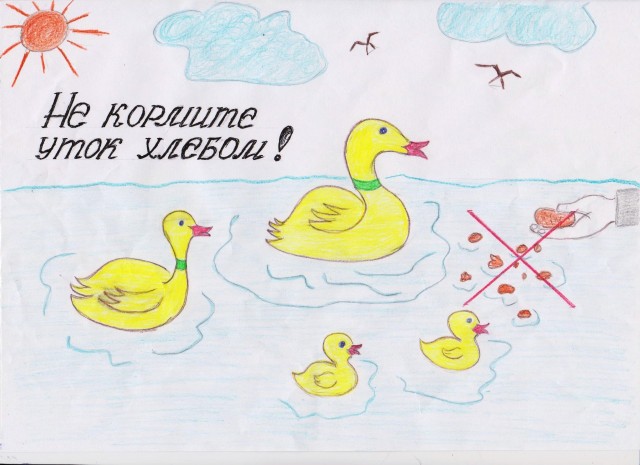 Не кормите
уток хлебом!